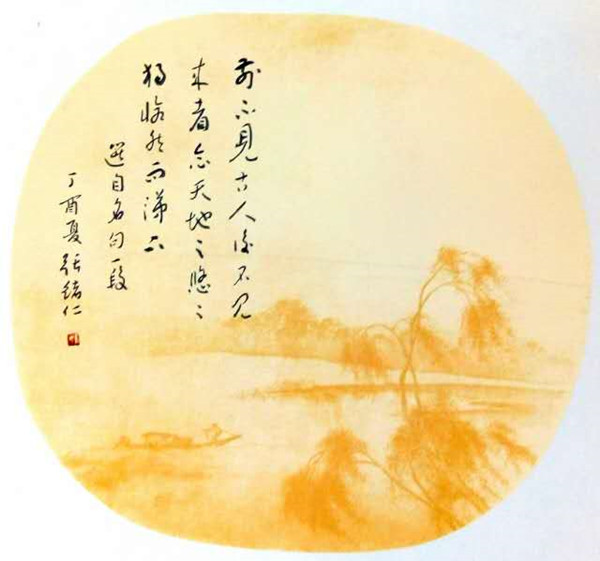 前不見古人後不見
来者念天地之悠々
獨愴然而涕下
選自名句一段
丁酉夏張緒仁